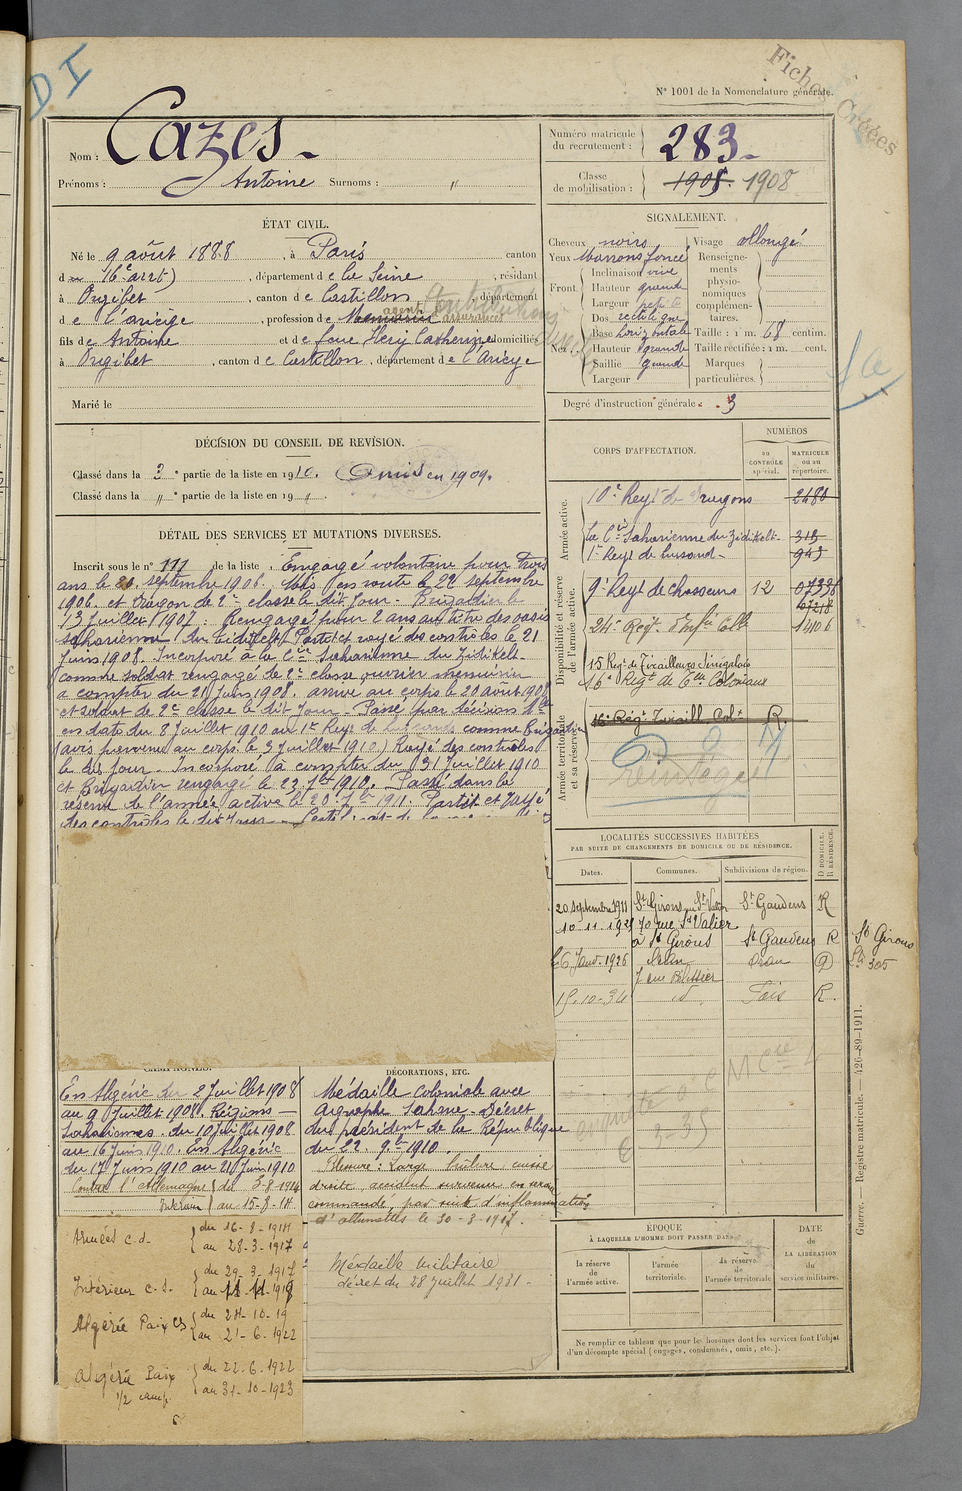 D I
Fiches Créées
N° 1001 de la Nomenclature générale.
Nom : Cazes
Prénoms : Antoine Surnoms : "
Numéro matricule du recrutement : 283
Classe de mobilisation : 1905. 1908
ÉTAT CIVIL.
Né le 9 août 1888, à Paris canton
d 16e arrt), département de la Seine, résidant
à Ourjibet, canton de Castillon, département
de l'ariège, profession de Menuisier agent assurances
fils de Antoine et de feue Héry Catherine domiciliés
à Ourjibet, canton de Castillon, département de l'Ariège
Marié le
SIGNALEMENT.
Cheveux noirs
Yeux Marrons foncé
Front Inclinaison vive
Hauteur grande
Largeur petite
Nez Dos rectiligne
Base horizontale
Hauteur grande
Saillie grande
Largeur
Visage allongé
Renseignements physionomiques complémentaires.
Taille : 1 m. 68 centim.
Taille rectifiée : 1 m. cent.
Marques particulières.
Degré d'instruction générale. 3
DÉCISION DU CONSEIL DE REVISION.
Classé dans la 3e partie de la liste en 1910. Omis en 1909.
Classé dans la " e partie de la liste en 19 " .
DÉTAIL DES SERVICES ET MUTATIONS DIVERSES.
Inscrit sous le n° 111 de la liste. Engagé volontaire pour trois
ans le 20 septembre 1906. Mis en route le 22 septembre
1906. et Dragon de 2e classe le dit jour. Brigadier le
13 Juillet 1907. Rengagé pour 2 ans au titre des oasis
saharienne du Tidikelt. Parti et rayé des contrôles le 21
Juin 1908. Incorporé à la Cie Saharienne du Tidikelt
comme soldat rengagé de 2e classe ouvrier menuisier
à compter du 21 Juin 1908. arrivé au corps le 20 août 1908
et soldat de 2e classe le dit jour. Passé par décision
en date du 8 Juillet 1910 au 1er Regt de hussards comme Brigadier
(avis parvenu au corps le 3 Juillet 1910) Rayé des contrôles
le dit jour. Incorporé à compter du 31 Juillet 1910
et Brigadier rengagé le 23 7bre 1910. Passé dans la
réserve de l'armée active le 20 7bre 1911. Partit et rayé
des contrôles le dit jour
CORPS D'AFFECTATION.
NUMÉROS
au CONTRÔLE spécial.
MATRICULE ou au répertoire.
Armée active.
10e Regt de Dragons 2480
la Cie Saharienne du Tidikelt 315
1er Regt de hussard 943
Disponibilité et réserve de l'armée active.
9e Regt de chasseurs 12 07336
24e Regt d'Infie Colle 1410 6
15 Regt de Tirailleurs Sénégalais
16e Regt de Tlls Coloniaux
Armée territoriale et sa réserve.
16e Régt Tiraill. Col. R.
LOCALITÉS SUCCESSIVES HABITÉES
PAR SUITE DE CHANGEMENTS DE DOMICILE OU DE RÉSIDENCE.
Dates. Communes. Subdivisions de région. D DOMICILE. R RÉSIDENCE.
20 septembre 1911 St Girons St Gaudens R
10-11-1925 70 rue St Valier à St Girons St Gaudens R
6 Janv. 1926 Oran Oran D
15-10-34 id Foix R.
St Girons
305
CAMPAGNES.
En Algérie du 2 Juillet 1908
au 9 Juillet 1908. Régions
Sahariennes. du 10 Juillet 1908
au 16 Juin 1910. En Algérie
du 17 Juin 1910 au 21 Juin 1910
Contre l'Allemagne du 3-8-1914
Intérieur au 15-8-14
Armées c.d. du 16-8-1914
au 28-3-1917
Intérieur c.s. du 29-3-1917
Algérie Paix du 24-10-19
au 21-6-1922
Algérie Paix du 22-6-1922
1/2 camp. au 31-10-1923
DÉCORATIONS, ETC.
Médaille coloniale avec
Agraphe Sahara. Décret
du président de la République
du 22. 9bre 1910.
Blessure : Large brûlure cuisse
droite, accident survenu en service
commandé, par suite d'inflammation
d'allumettes le 30-3-1917.
Médaille militaire
décret du 28 juillet 1931
ÉPOQUE
À LAQUELLE L'HOMME DOIT PASSER DANS
la réserve de l'armée active.
l'armée territoriale.
la réserve de l'armée territoriale
DATE DE LA LIBÉRATION du service militaire.
Ne remplir ce tableau que pour les hommes dont les services font l'objet
d'un décompte spécial (engagés, condamnés, omis, etc.).
Guerre. — Registre matricule. — 426-89-1911.